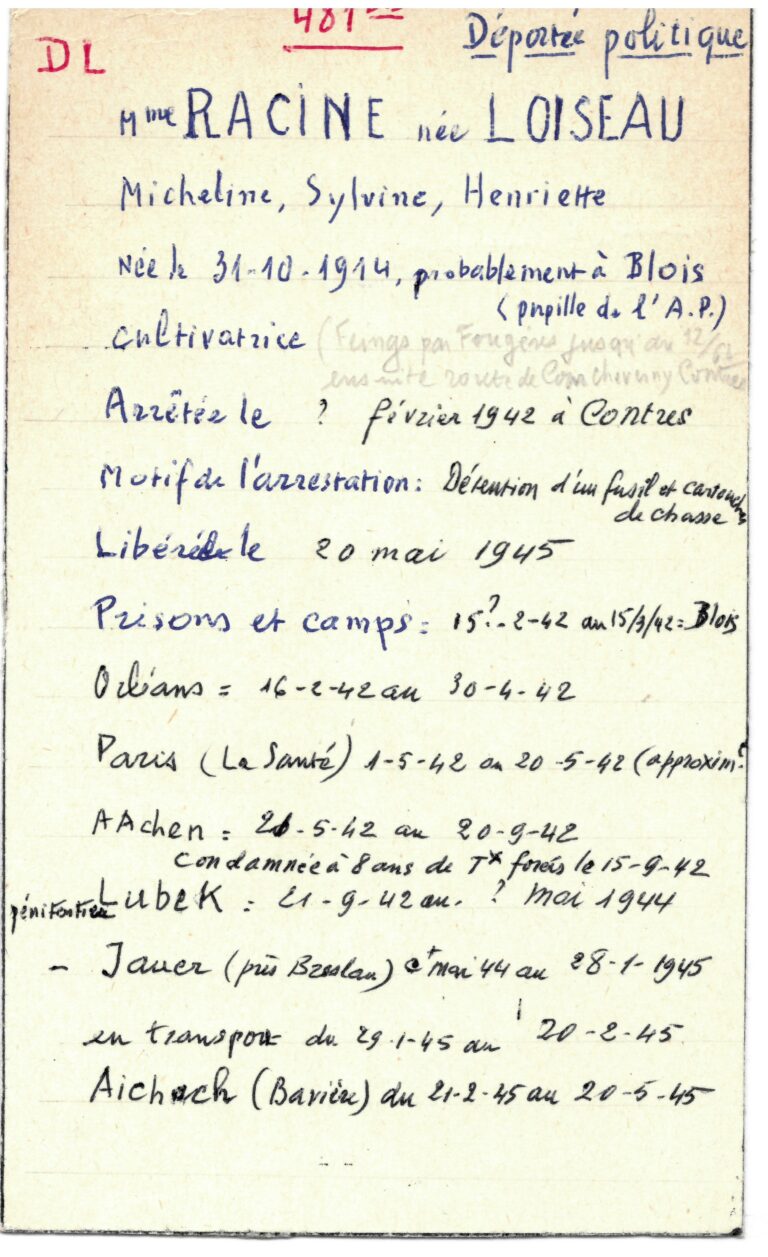 481
Déportée politique
DL
Mme RACINE née LOISEAU
Micheline, Sylvine, Henriette
Née le 31-10-1914, probablement à Blois
(pupille de l'A.P.)
cultivatrice (Feings par Fougères jusqu'au 12/
ensuite route de Contres
Arrêtée le ? février 1942 à Contres
Motif de l'arrestation: Détention d'un fusil et cartouches
de chasse
Libérée le 20 mai 1945
Prisons et camps = 15?-2-42 au 15/3/42 = Blois
Orléans = 16-2-42 au 30-4-42
Paris (La Santé) 1-5-42 au 20-5-42 (approximt
AAchen = 21-5-42 au 20-9-42
condamnée à 8 ans de Tx forcés le 15-9-42
pénitentier Lubek = 21-9-42 au ? mai 1944
- Jauer (près Breslau) mai 44 au 28-1-1945
en transport du 29-1-45 au 20-2-45
Aichach (Bavière) du 21-2-45 au 20-5-45